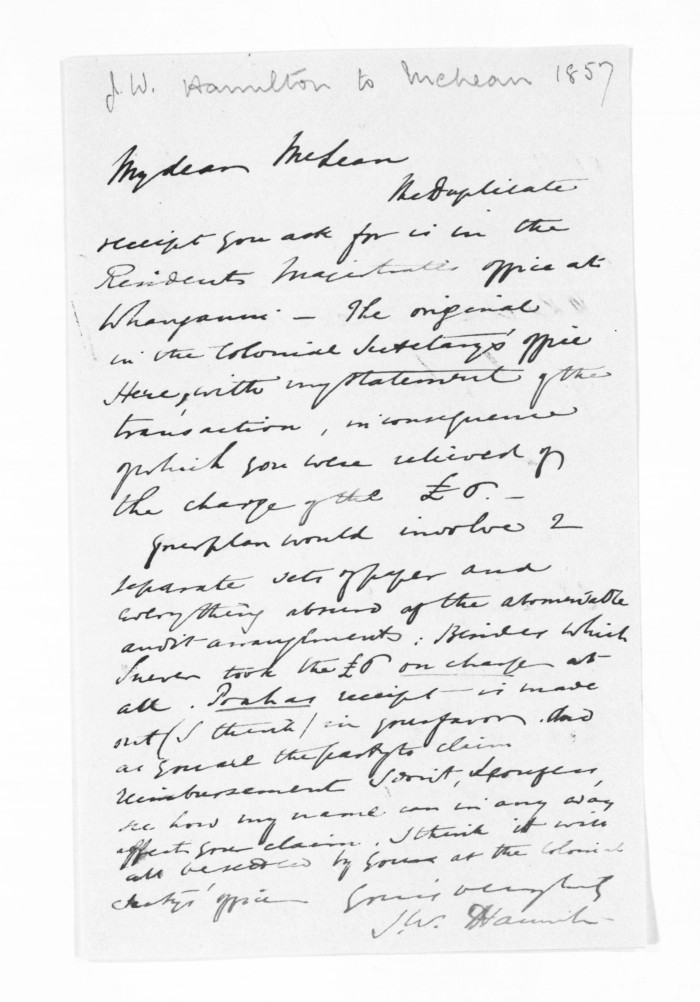 J. W. Hamilton to McLean 1857
My dear McLean
The Duplicate
receipt you ask for is in the
Residents Magistrates office at
Whanganui – The original
in the Colonial Secretary's office
Here, with my statement of the
transaction, in consequence
of which you were relieved of
the charge of the £6. –
Your plan would involve 2
separate sets of paper and
everything absurd of the abominable
audit arrangements: Besides which
I never took the £6 on charge at
all. receipt is made
out (I think) in your favor. And
as you are the party to claim
reimbursement I don't, I confess,
see how my name can in any way
affect your claim. I think it will
all be settled by at the Colonial
Secty's office
Yours very truly
J. W. Hamilton